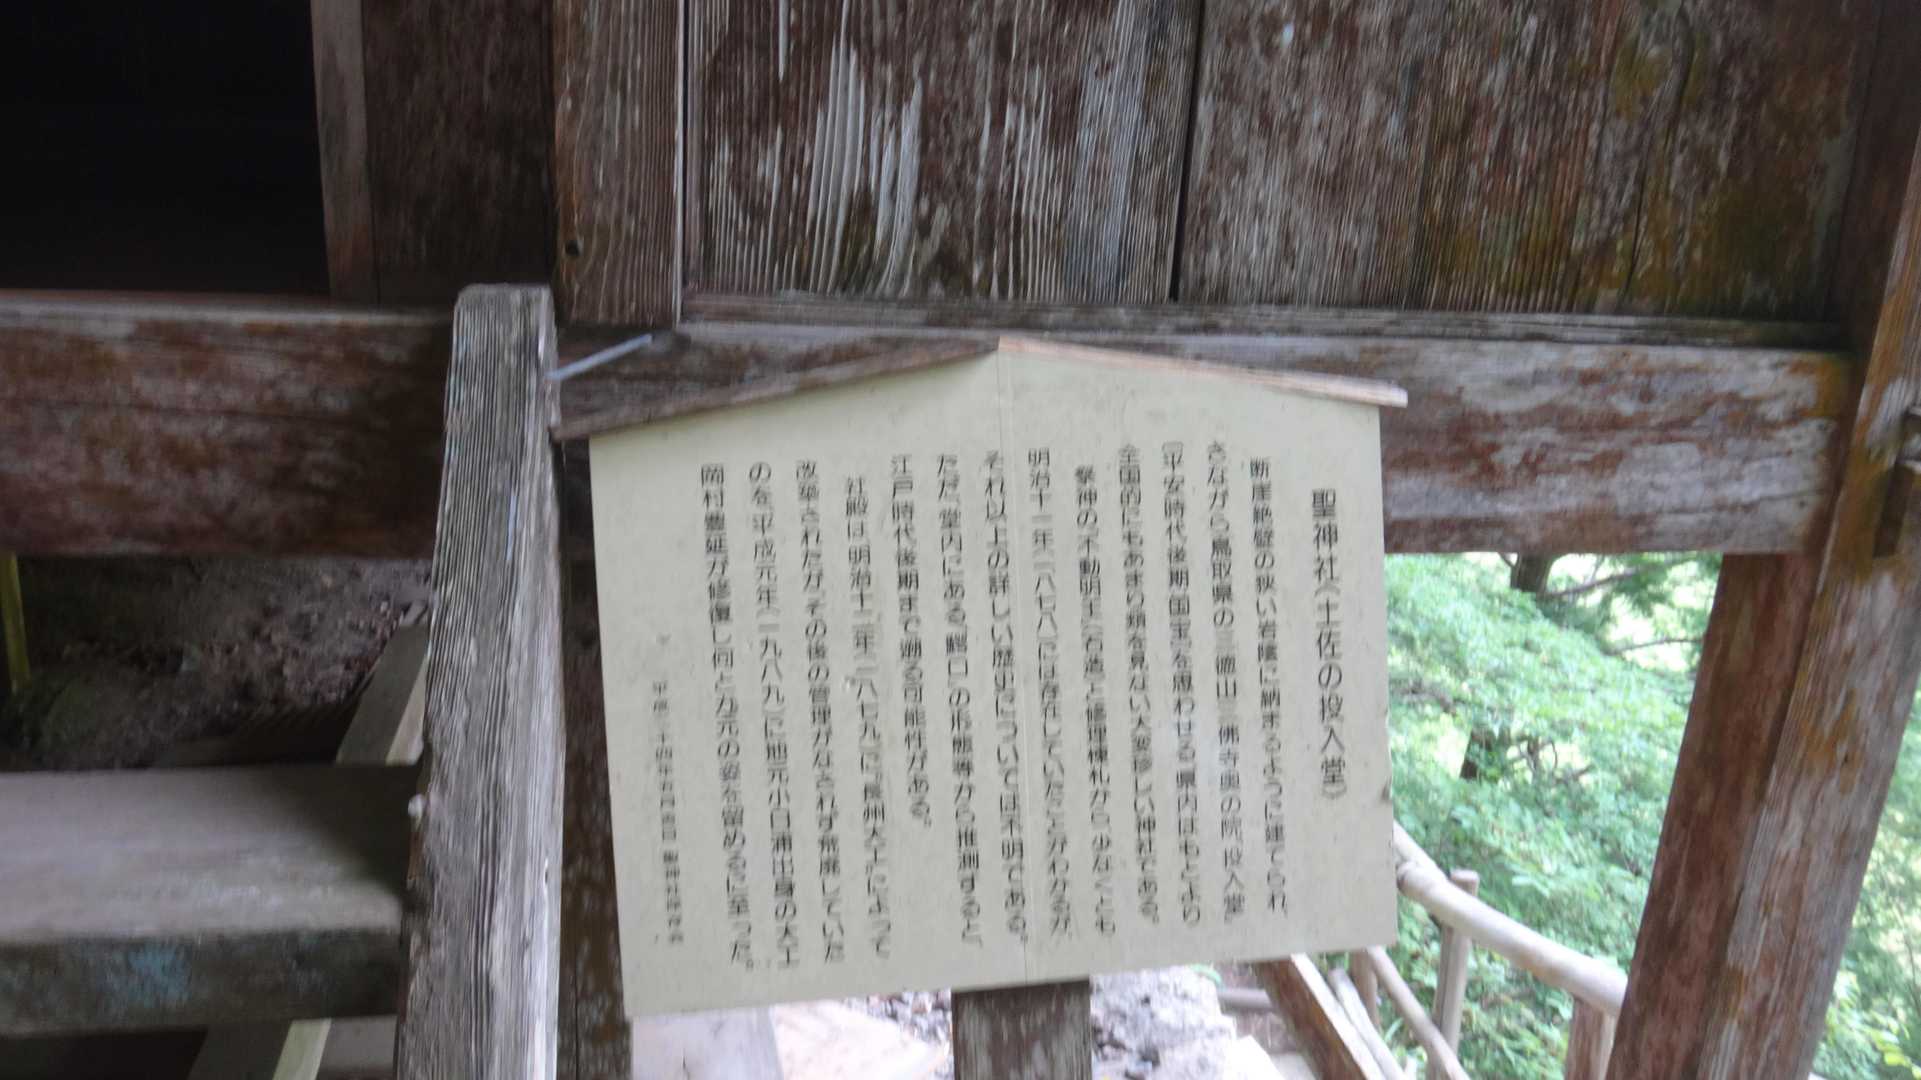 聖神社(土佐の投入堂)
断崖絶壁の狭い岩陰に納まるように建てられ、
さながら鳥取県の三徳山三佛寺奥の院「投入堂」
(平安時代後期・国宝)を思わせる。県内はもとよりの
全国的にもあまり類を見ない大変珍しい神社である。
祭神の不動明王(石造)と修理棟札から、少なくとも
明治十一年(一八七八)には存在していたことがわかるが、
それ以上の詳しい歴史については不明である。
ただ、堂内にある「鰐口」の形態等から推測すると、
江戸時代後期まで溯る可能性がある。
社殿は明治十二年(一八七九)に「長州大工」によって
改築されたが、その後の管理がなされず荒廃していた
のを、平成元年(一九八九)に地元小口浦出身の大工
岡村豊延が修復し、何とか元の姿を留めるに至った。
平成二十四年五月吉日